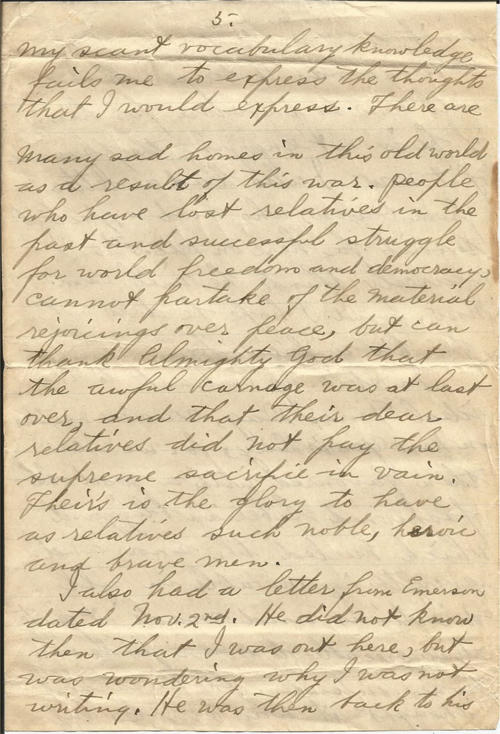 5.
my scant vocabulary knowledge
fails me to express the thoughts
that I would express. There are
many sad homes in this old world
as a result of this war. People
who have lost relatives in the
past and successful struggle
for world freedom and democracy,
cannot partake of the material
rejoicings over peace, but can
thank Almighty God that
the awful carnage was at last
over, and that their dear
relatives did not pay the
supreme sacrifice in vain.
Their's is the glory to have
as relatives such noble, heroic
and brave men.
I also had a letter from Emerson
dated Nov. 2nd. He did not know
then that I was out here, but
was wondering why I was not
writing. He was then back to his